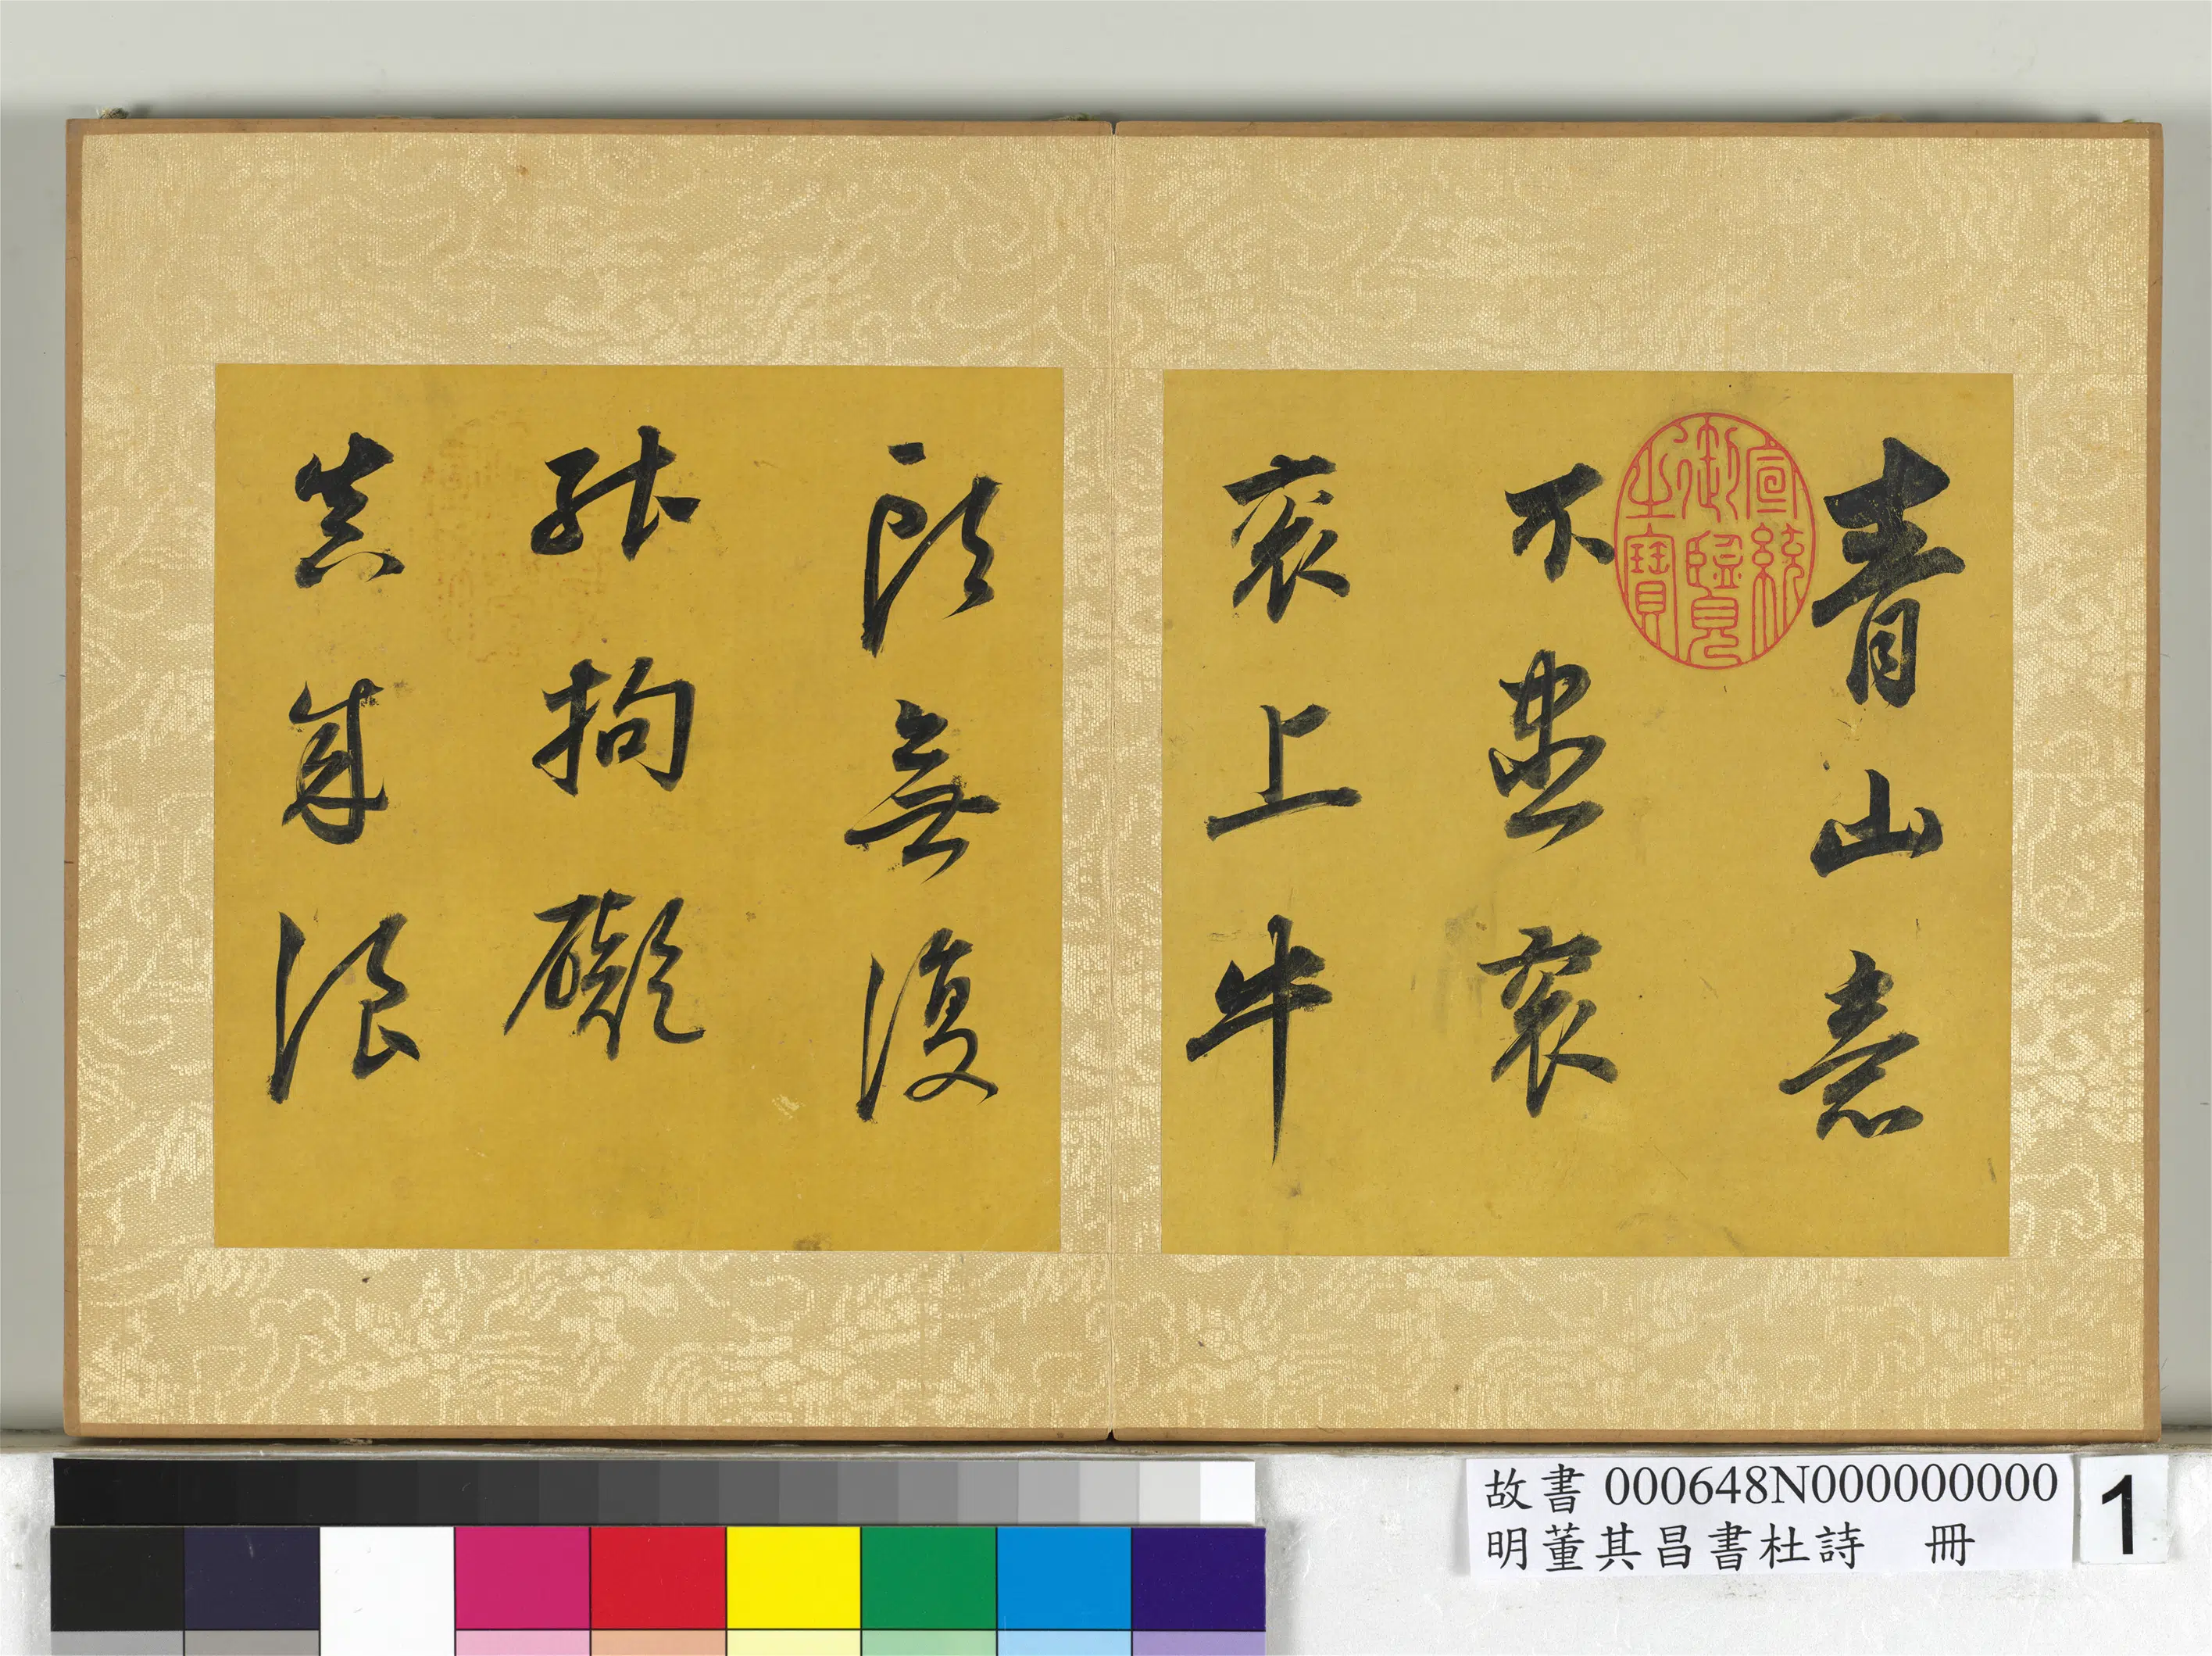 青山意
不盡衮
衮上牛
頭無復
能拘礙
真成浪
宣統
御覽
之寶
故書 000648N000000000
明董其昌書杜詩 冊
1